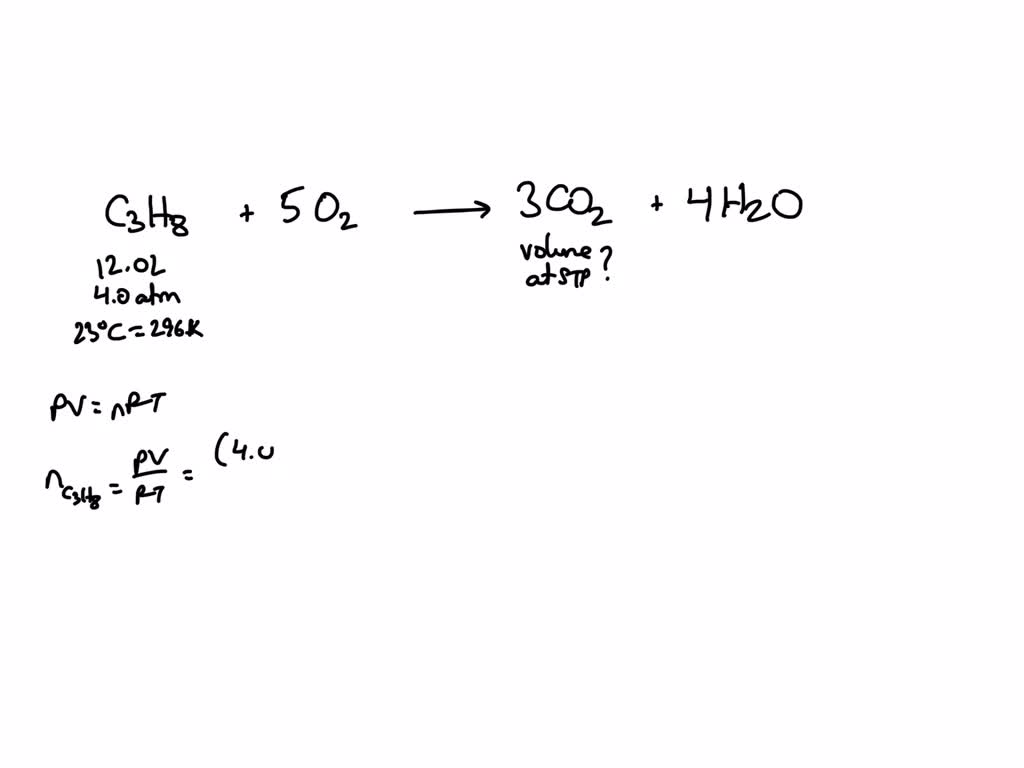 C₃H₈ + 5 O₂ ⟶ 3CO₂ + 4H₂O
12.0L
4.0 atm
23°C = 296K
volume at STP ?
PV = nRT
n_C₃H₈ = PV/RT = (4.0